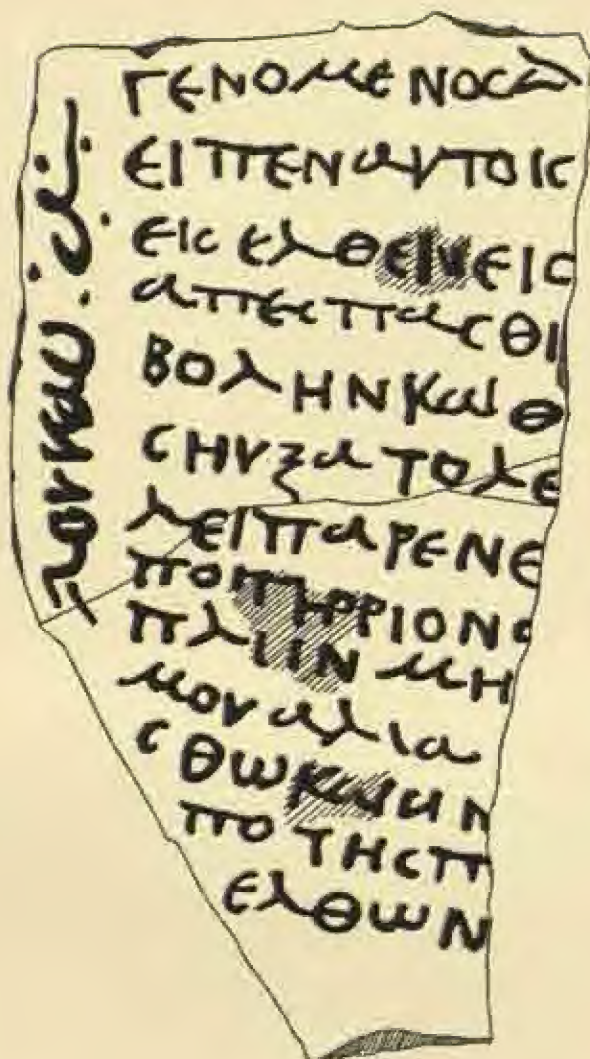 ΓΕΝΟΜΕΝΟCΔ
ΕΙΠΕΝΑΥΤΟΙC
ΕΙCΕΛΘΕΙΝΕΙC
ΑΠΕCΠΑCΘΙ
ΒΟΛΗΝΚΑΙΘ
CΗΥΞΑΤΟΛΕ
ΛΕΙΠΑΡΕΝΕ
ΠΟΤΗΡΡΙΟΝC
ΠΛΙΙΝ ΜΗ
ΜΟΥΑΛΙΑ
CΘΩΚΑΙΑΝ
ΠΟΤΗCΠ
ΕΛΘΩΝ
ΛΟΥΚΑΥ